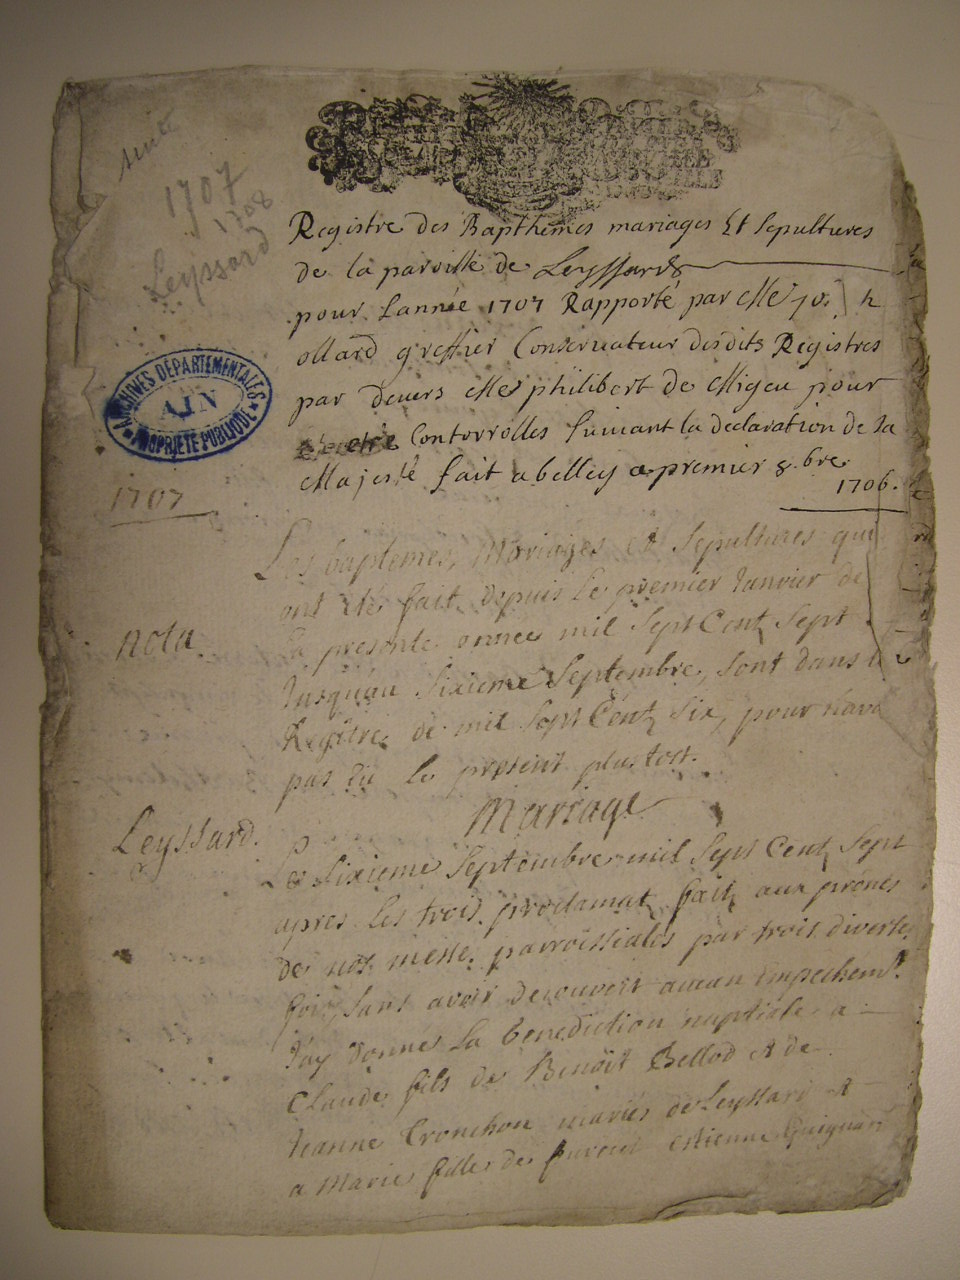 suite
1707
1708
Leyssard
Registre des Bapthemes mariages Et sepultures
de la paroisse de Leyssard
pour Lannée 1707 Rapporté par Me Jo h
ollard greffier Conseruateur desdits Registres
par deuers Me philibert de Migeu pour
estre Contorrolles suiuant la declaration de sa
Majesté fait a belley a premier 8.bre
1706.
ARCHIVES DÉPARTEMENTALES
AIN
PROPRIÉTÉ PUBLIQUE
1707
Les baptemes, Mariages et Sepultures qui
ont été fait depuis le premier Janvier de
nota.
la presente année mil Sept Cent Sept
Jusquau Sixieme Septembre, sont dans
Regitre de mil Sept Cent Six, pour n'avo
pas eu le present plustost.
Mariage
Leyssard.
Le Sixieme Septembre mil Sept Cent Sept
apres les trois proclamat fait aux prônes
de nos messe parroissiales par trois diverses
fois, sans avoir decouvert aucun empechemt.
J'ay donné la benediction nuptiale a
Claude fils de Benoît Bellod et de
Jeanne Tronchon mariés de Leyssard et
a Marie fille de Estienne Guignard